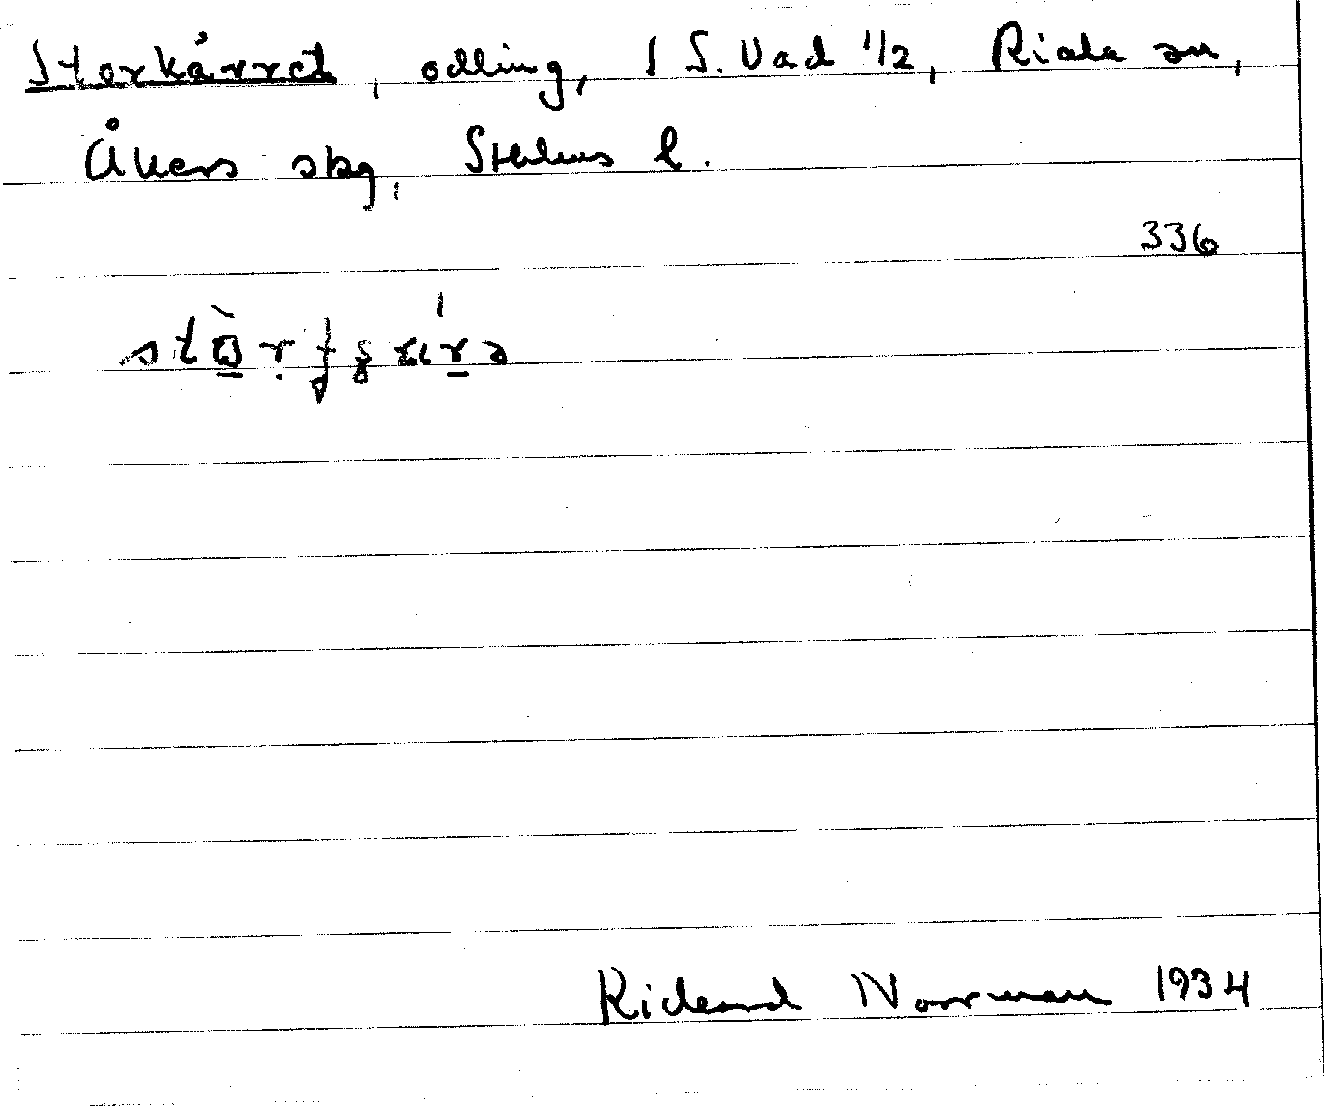 Storkärret, odling, 1 S. Vad 1/2, Riala sn,
Åkers skg, Sthlms l.
336
Rickard Norrman 1934